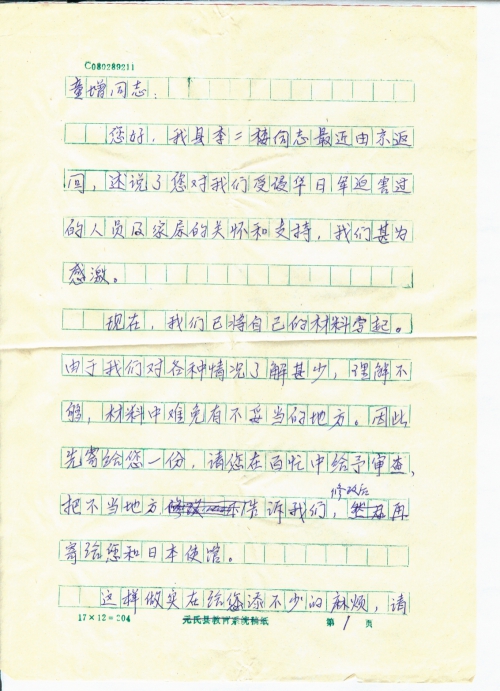 C080289211
童增同志：
您好，我县李二楼同志最近由京返
回，述说了您对我们受侵华日军迫害过
的人员及家属的关怀和支持，我们甚为
感激。
现在，我们已将自己的材料写起。
由于我们对各种情况了解甚少，理解不
够，材料中难免有不妥当的地方。因此
先寄给您一份，请您在百忙中给予审查，
修改后
把不当地方告诉我们，再
寄给您和日本使馆。
这样做实在给您添不少的麻烦，请
17×12=204 元氏县教育系统稿纸 第1页